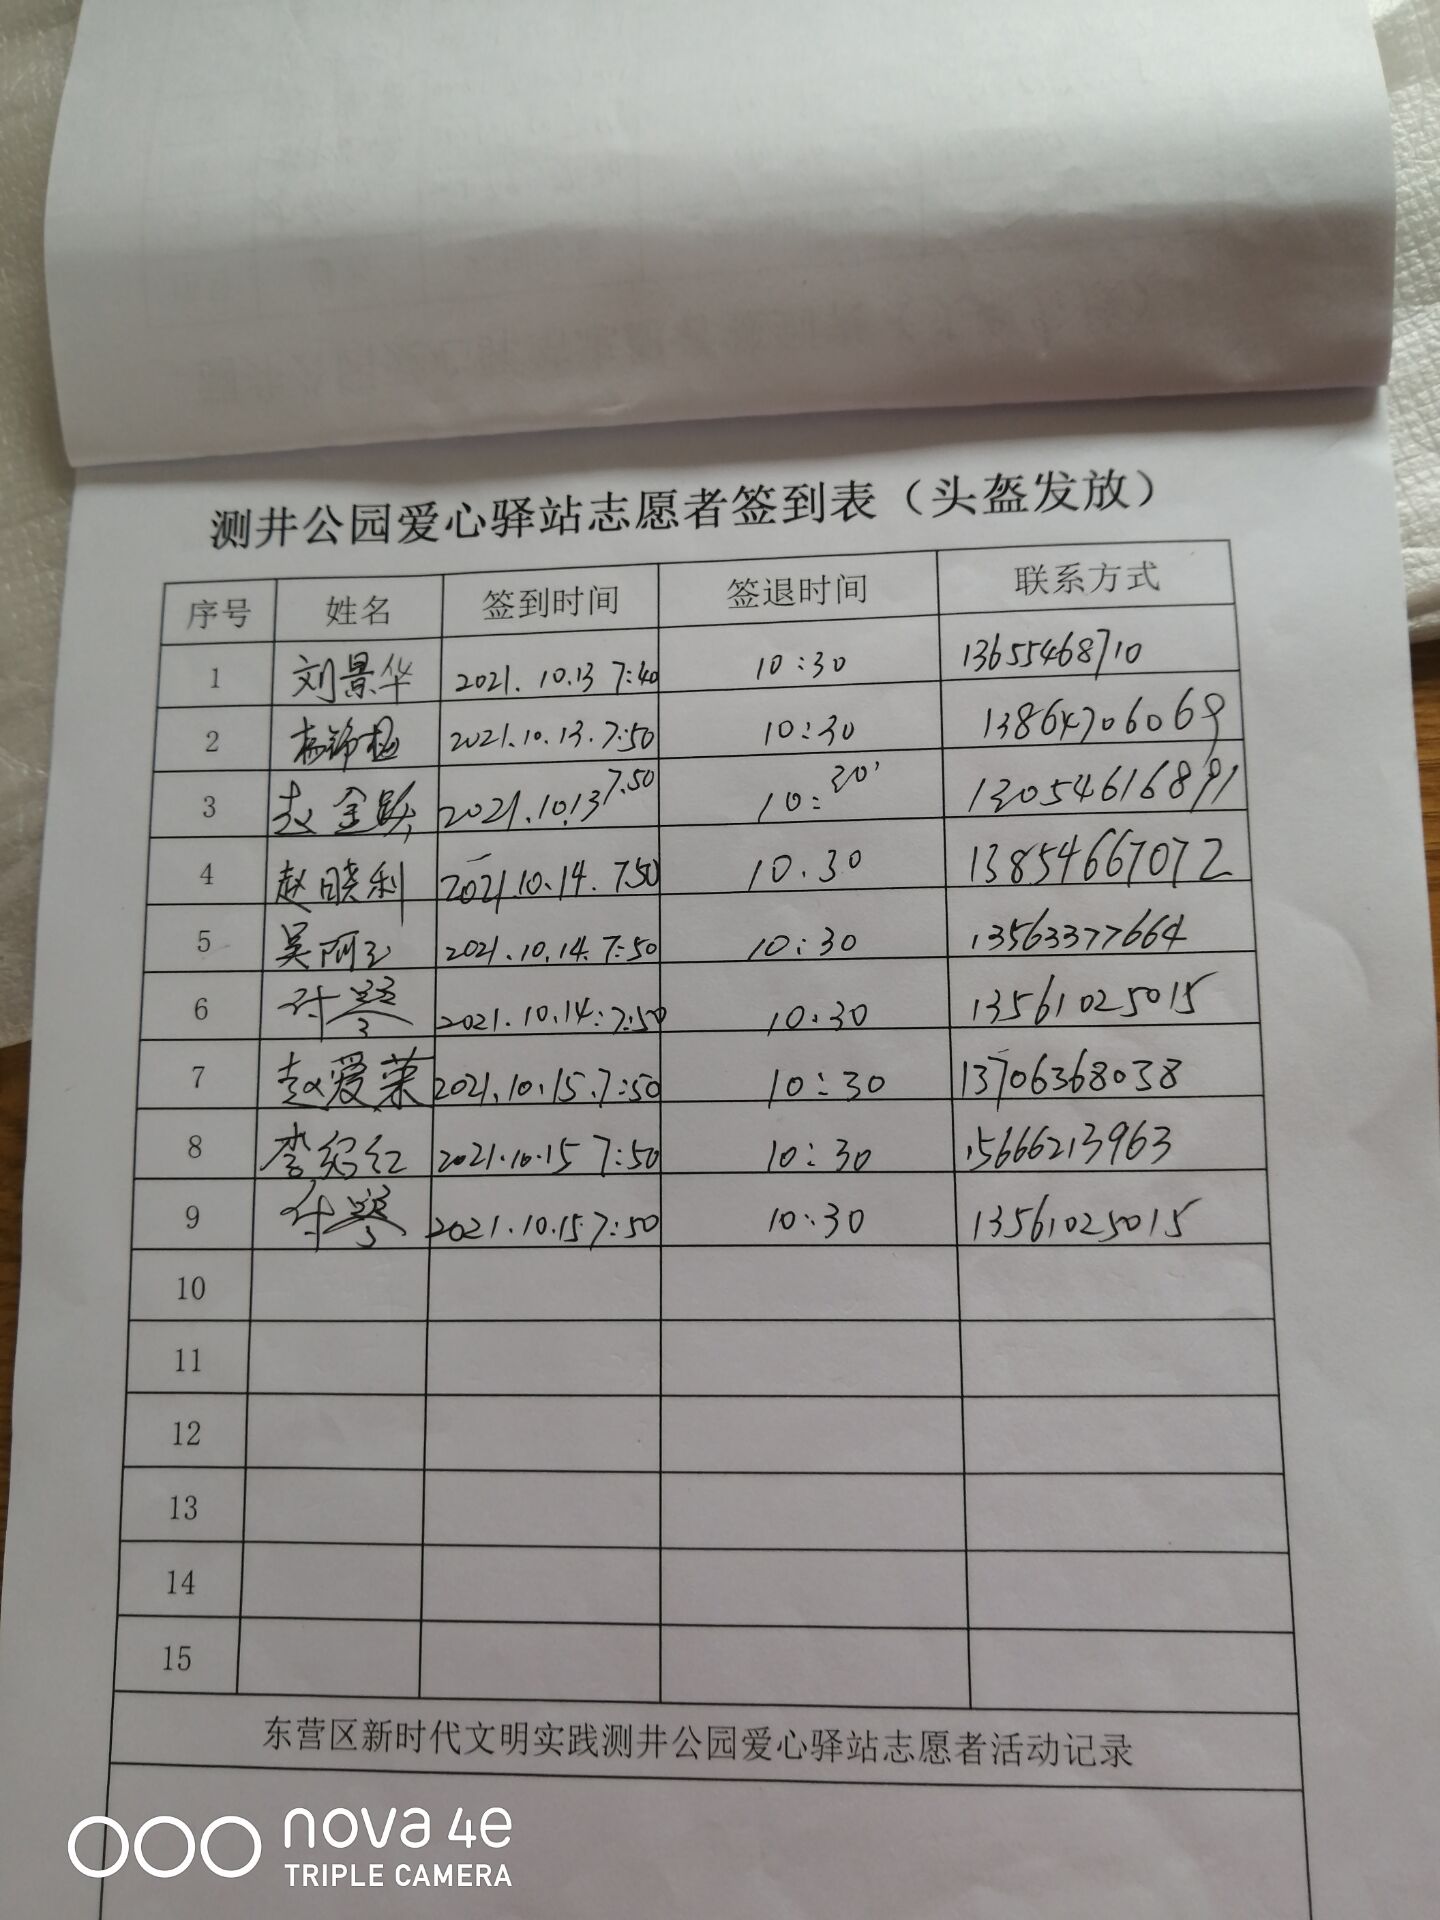 测井公园爱心驿站志愿者签到表（头盔发放）
序号 姓名 签到时间 签退时间 联系方式
1 刘景华 2021.10.13 7:40 10:30 13655468710
2 2021.10.13.7:50 10:30 13864706069
3 赵金跃 2021.10.13 7.50 10:30' 13054616891
4 赵晓利 2021.10.14.750 10.30 13854667072
5 吴阿玉 2021.10.14.7:50 10:30 13563377664
6 2021.10.14:7:50 10:30 13561025015
7 赵爱荣 2021.10.15.7:50 10:30 13706368038
8 李绍红 2021.10.15 7:50 10:30 15666213963
9 2021.10.15 7:50 10:30 13561025015
10
11
12
13
14
15
东营区新时代文明实践测井公园爱心驿站志愿者活动记录
nova 4e
TRIPLE CAMERA